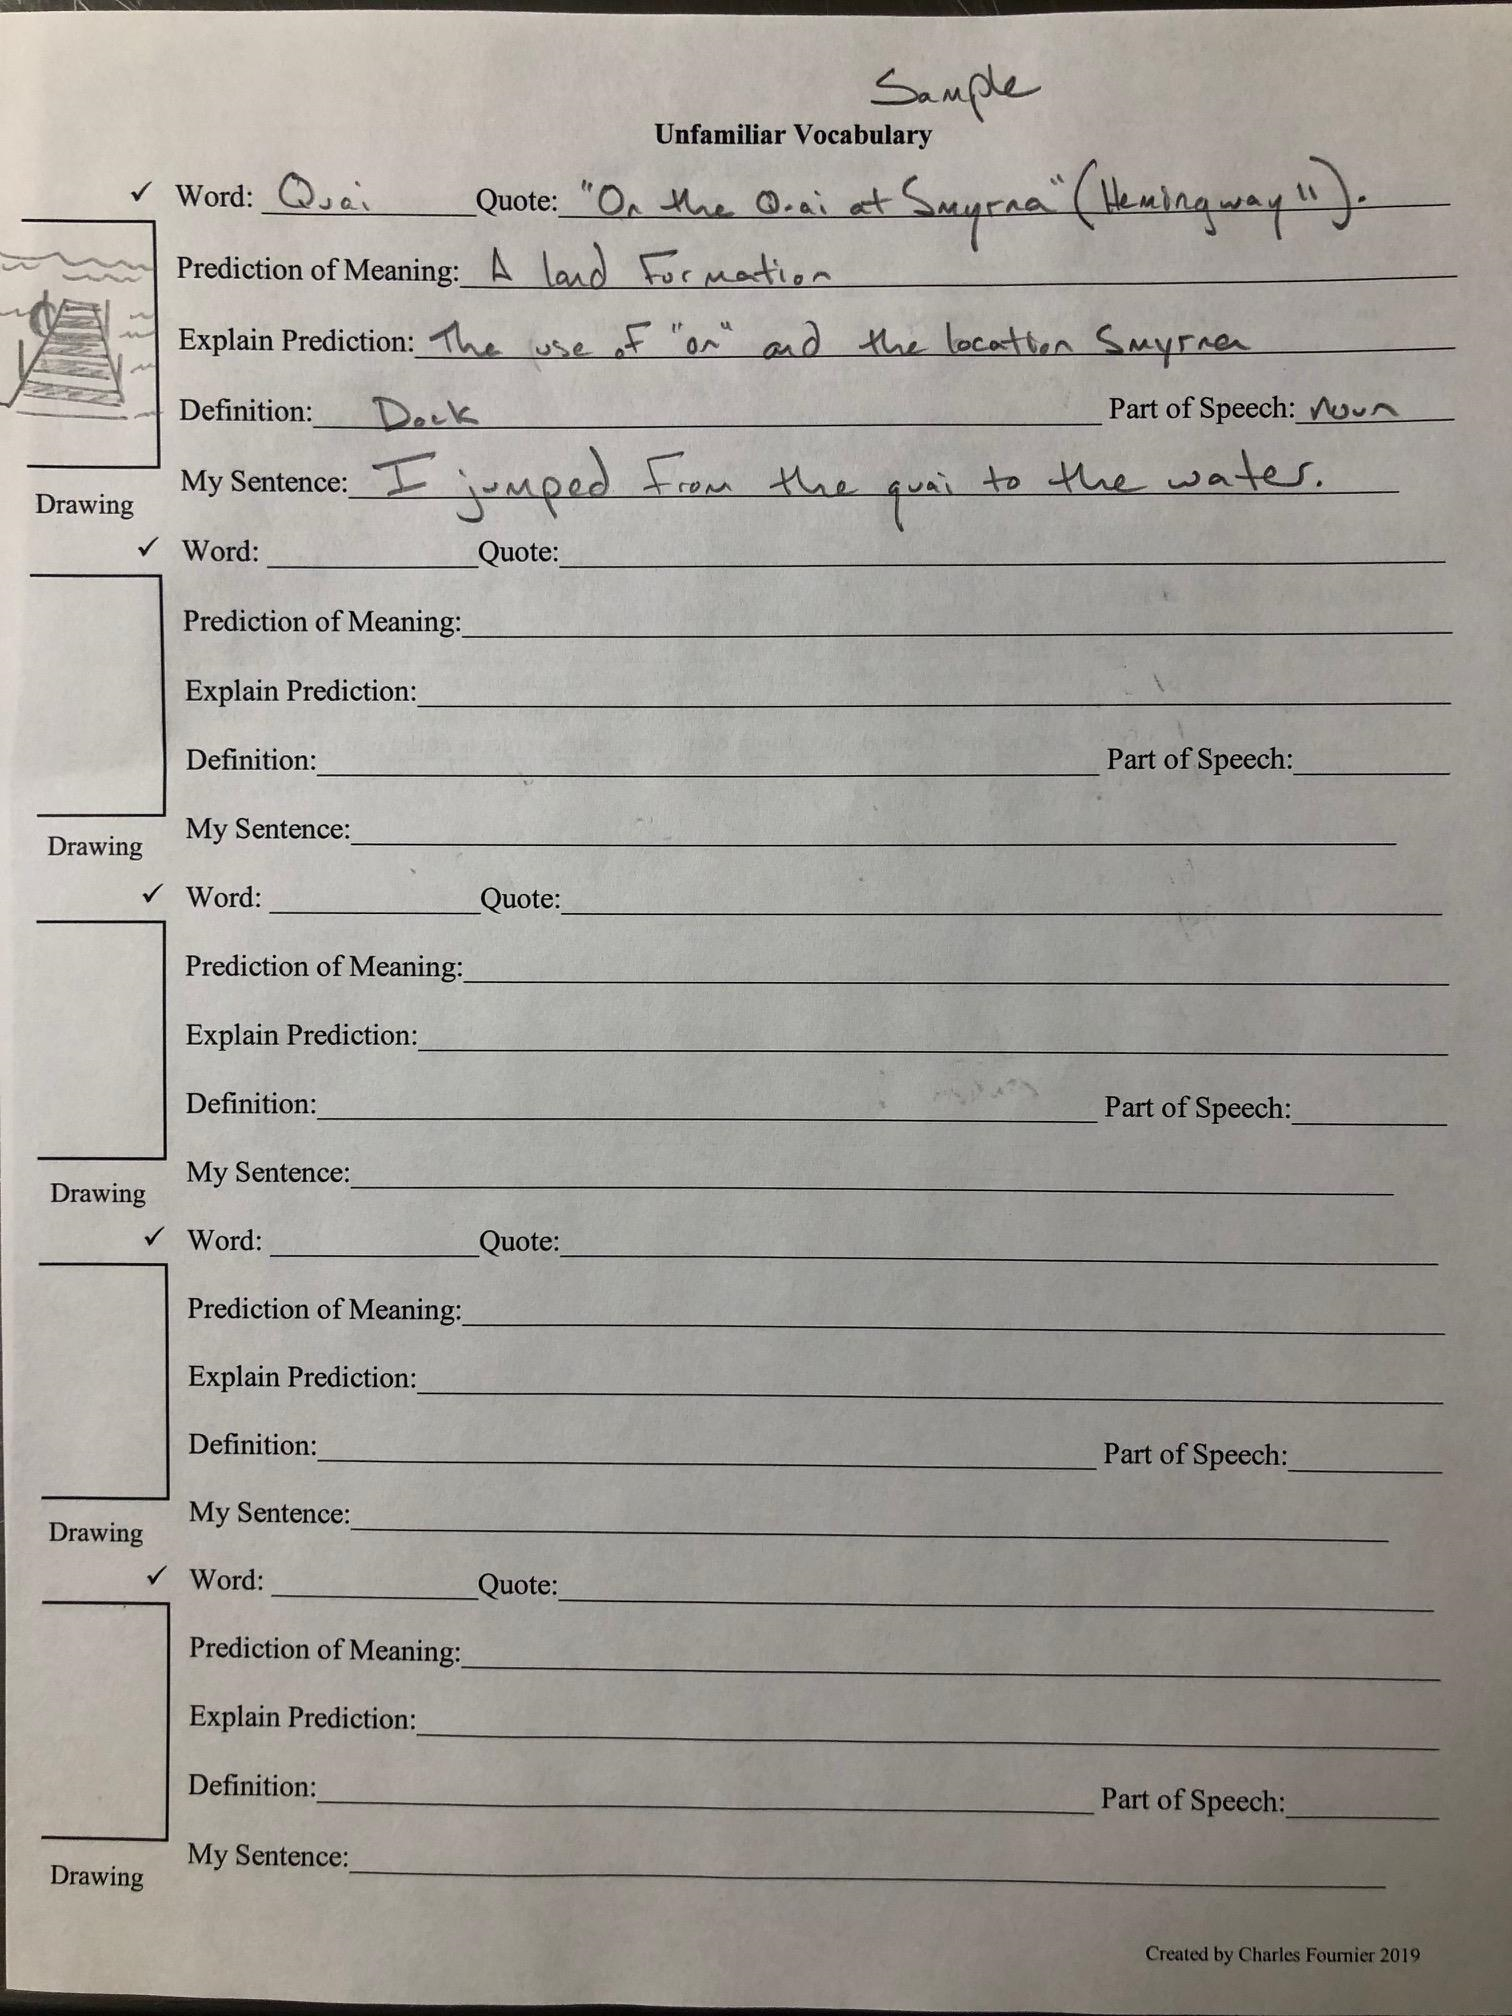 Sample
Unfamiliar Vocabulary
✓ Word: Quai Quote: "On the Quai at Smyrna" (Hemingway 11).
Prediction of Meaning: A land Formation
Explain Prediction: The use of "on" and the location Smyrna
Definition: Dock Part of Speech: Noun
My Sentence: I jumped From the quai to the water.
Drawing
✓ Word: Quote:
Prediction of Meaning:
Explain Prediction:
Definition: Part of Speech:
My Sentence:
Drawing
✓ Word: Quote:
Prediction of Meaning:
Explain Prediction:
Definition: Part of Speech:
My Sentence:
Drawing
✓ Word: Quote:
Prediction of Meaning:
Explain Prediction:
Definition: Part of Speech:
My Sentence:
Drawing
✓ Word: Quote:
Prediction of Meaning:
Explain Prediction:
Definition: Part of Speech:
My Sentence:
Drawing
Created by Charles Fournier 2019